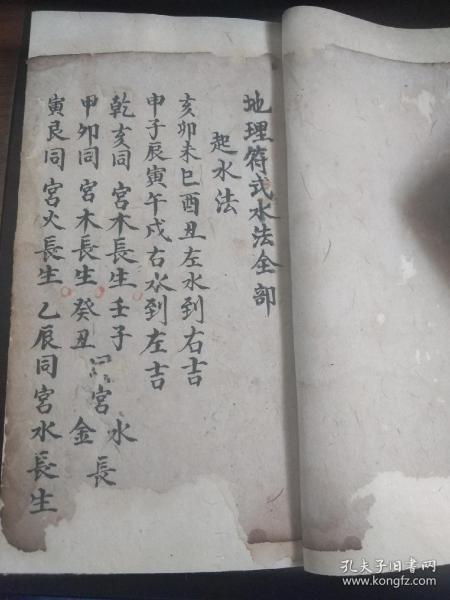 地理符式水法全部
起水法
亥卯未巳酉丑左水到右吉
申子辰寅午戌右水到左吉
乾亥同宮木長生壬子
宮水
長
甲卯同宮木長生癸丑
金
寅艮同宮火長生乙辰同宮水長生
孔夫子旧书网
www.kongfz.com